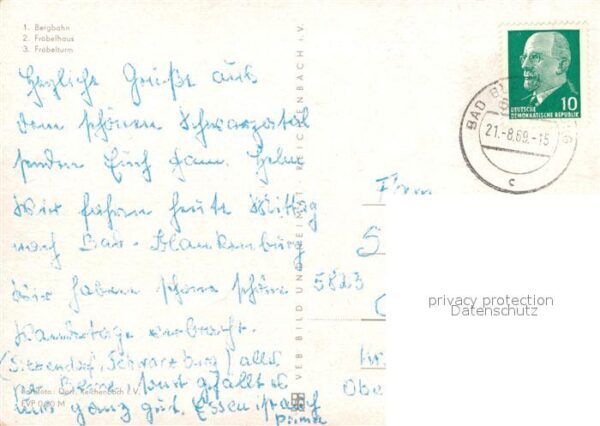 1. Bergbahn
2. Fröbelhaus
3. Fröbelturm
Herzliche Grüße aus
dem schönen Schwarzatal
senden Euch Fam.
Wir fahren heute Mittag
nach Bad-Blankenburg
Wir haben schöne schöne
Wandertage verbracht.
(Sitzendorf, Schwarzburg) alles
sonst gefällt es
uns ganz gut. Essen ist auch
prima
Reichenbach i. V.
EVP 0,20 M
VEB BILD UND HEIMAT REICHENBACH I. V.
10
DEUTSCHE
DEMOKRATISCHE REPUBLIK
BAD
21.-8.69.-15
c
5823
privacy protection
Datenschutz